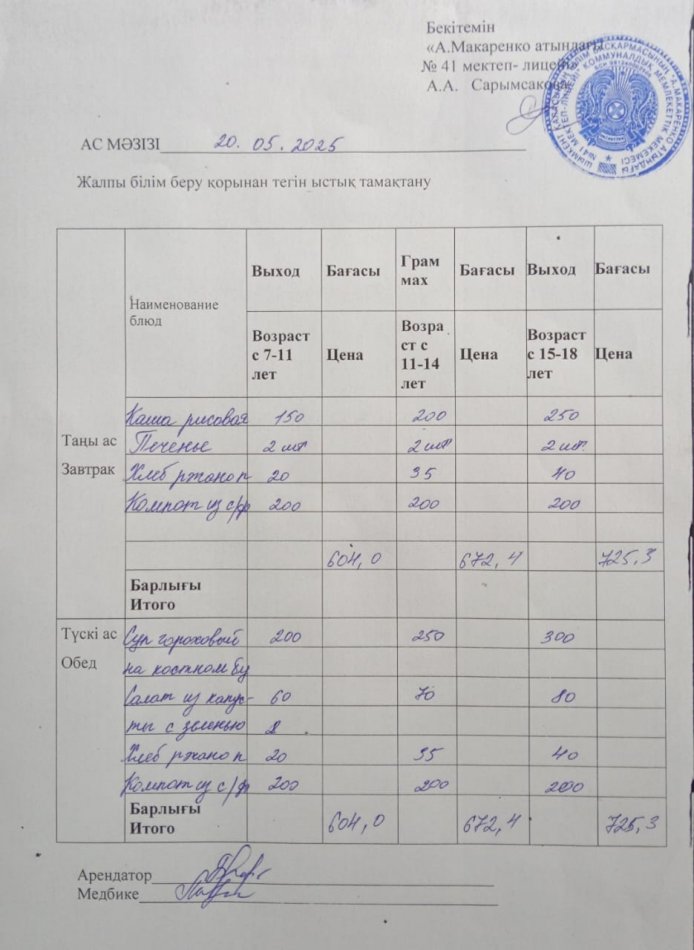 Бекітемін
«А.Макаренко атындағы
№ 41 мектеп- лицей
А.А. Сарымсакова
АС МӘЗІЗІ 20.05.2025
Жалпы білім беру қорынан тегін ыстық тамақтану
Наименование блюд Выход Бағасы Грам мах Бағасы Выход Бағасы
Возраст с 7-11 лет Цена Возра ст с 11-14 лет Цена Возраст с 15-18 лет Цена
Таңы ас
Завтрак
Каша рисовая 150 200 250
Печенье 2 шт 2 шт 2 шт.
Хлеб ржано п 20 35 40
Компот из с/ф 200 200 200
604,0 672,4 725,3
Барлығы
Итого
Түскі ас
Обед
Суп гороховый 200 250 300
на костном бу
Салат из капус- 60 70 80
ты с зеленью
Хлеб ржано п 20 35 40
Компот из с/ф 200 200 200
Барлығы
Итого 604,0 672,4 725,3
Арендатор
Медбике